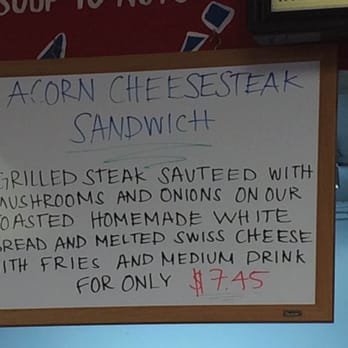 SOUP TO NUTS
ACORN CHEESESTEAK
SANDWICH
GRILLED STEAK SAUTEED WITH
MUSHROOMS AND ONIONS ON OUR
TOASTED HOMEMADE WHITE
BREAD AND MELTED SWISS CHEESE
WITH FRIES AND MEDIUM DRINK
FOR ONLY $7.45